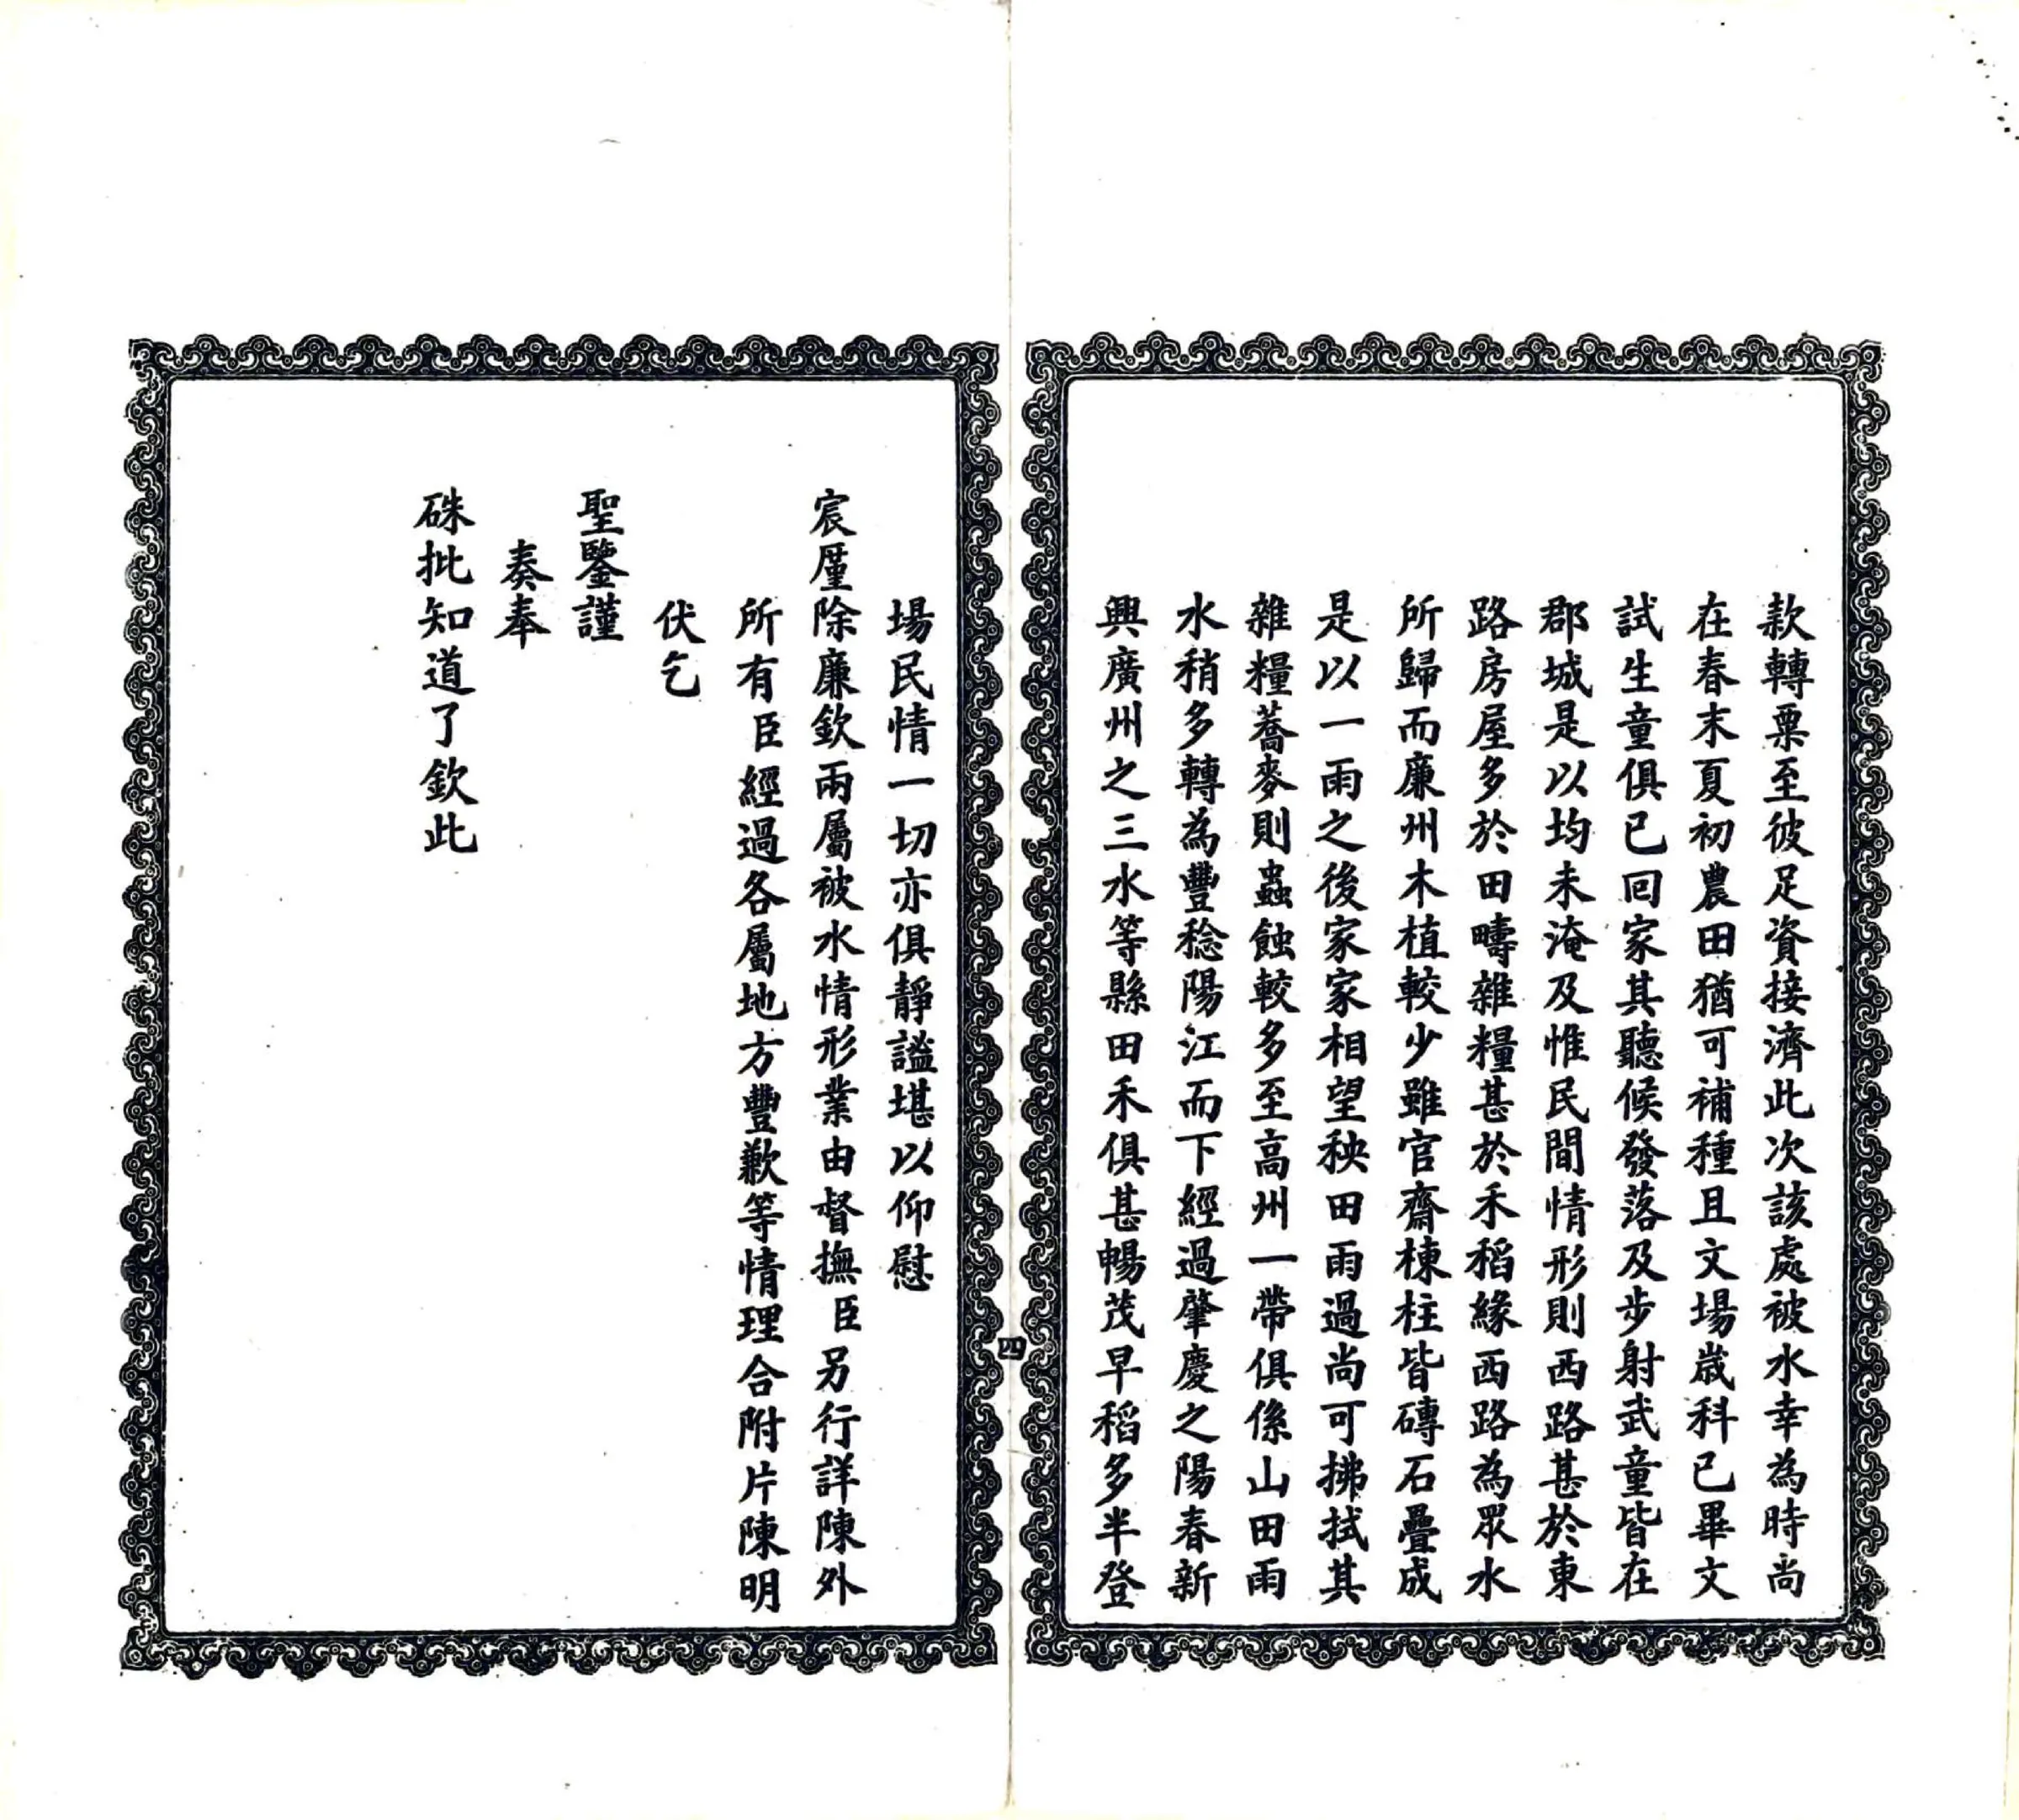 款轉粟至彼足資接濟此次該處被水幸為時尚
在春末夏初農田猶可補種且文場歲科已畢文
試生童俱已回家其聽候發落及步射武童皆在
郡城是以均未淹及惟民間情形則西路甚於東
路房屋多於田疇雜糧甚於禾稻緣西路為眾水
所歸而廉州木植較少雖官齋棟柱皆磚石疊成
是以一雨之後家家相望秧田雨過尚可拂拭其
雜糧蕎麥則蟲蝕較多至高州一帶俱係山田雨
水稍多轉為豐稔陽江而下經過肇慶之陽春新
興廣州之三水等縣田禾俱甚暢茂早稻多半登
四
場民情一切亦俱靜謐堪以仰慰
宸厪除廉欽兩屬被水情形業由督撫臣另行詳陳外
所有臣經過各屬地方豐歉等情理合附片陳明
伏乞
聖鑒謹
奏奉
硃批知道了欽此